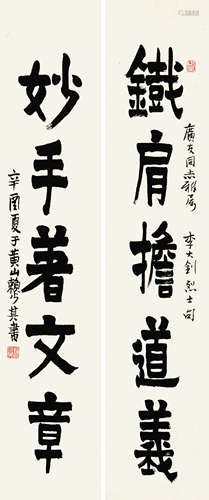 鐵肩擔道義
廣友同志雅屬
李大釗烈士句
妙手著文章
辛酉夏于黃山賴少其書